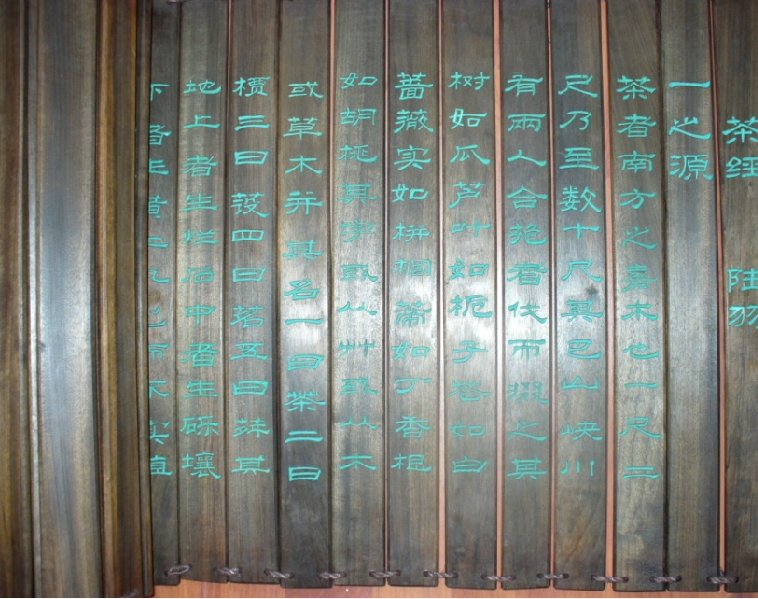 茶经 陆羽
一之源
茶者南方之嘉木也一尺二
尺乃至数十尺其巴山峡川
有兩人合抱者伐而掇之其
树如瓜芦叶如栀子花如白
蔷薇实如栟榈蒂如丁香根
如胡桃其字或从艸或从木
或草木并其名一曰茶二曰
槚三曰蔎四曰茗五曰荈其
地上者生烂石中者生砾壤
下者生黄土凡艺而不实植